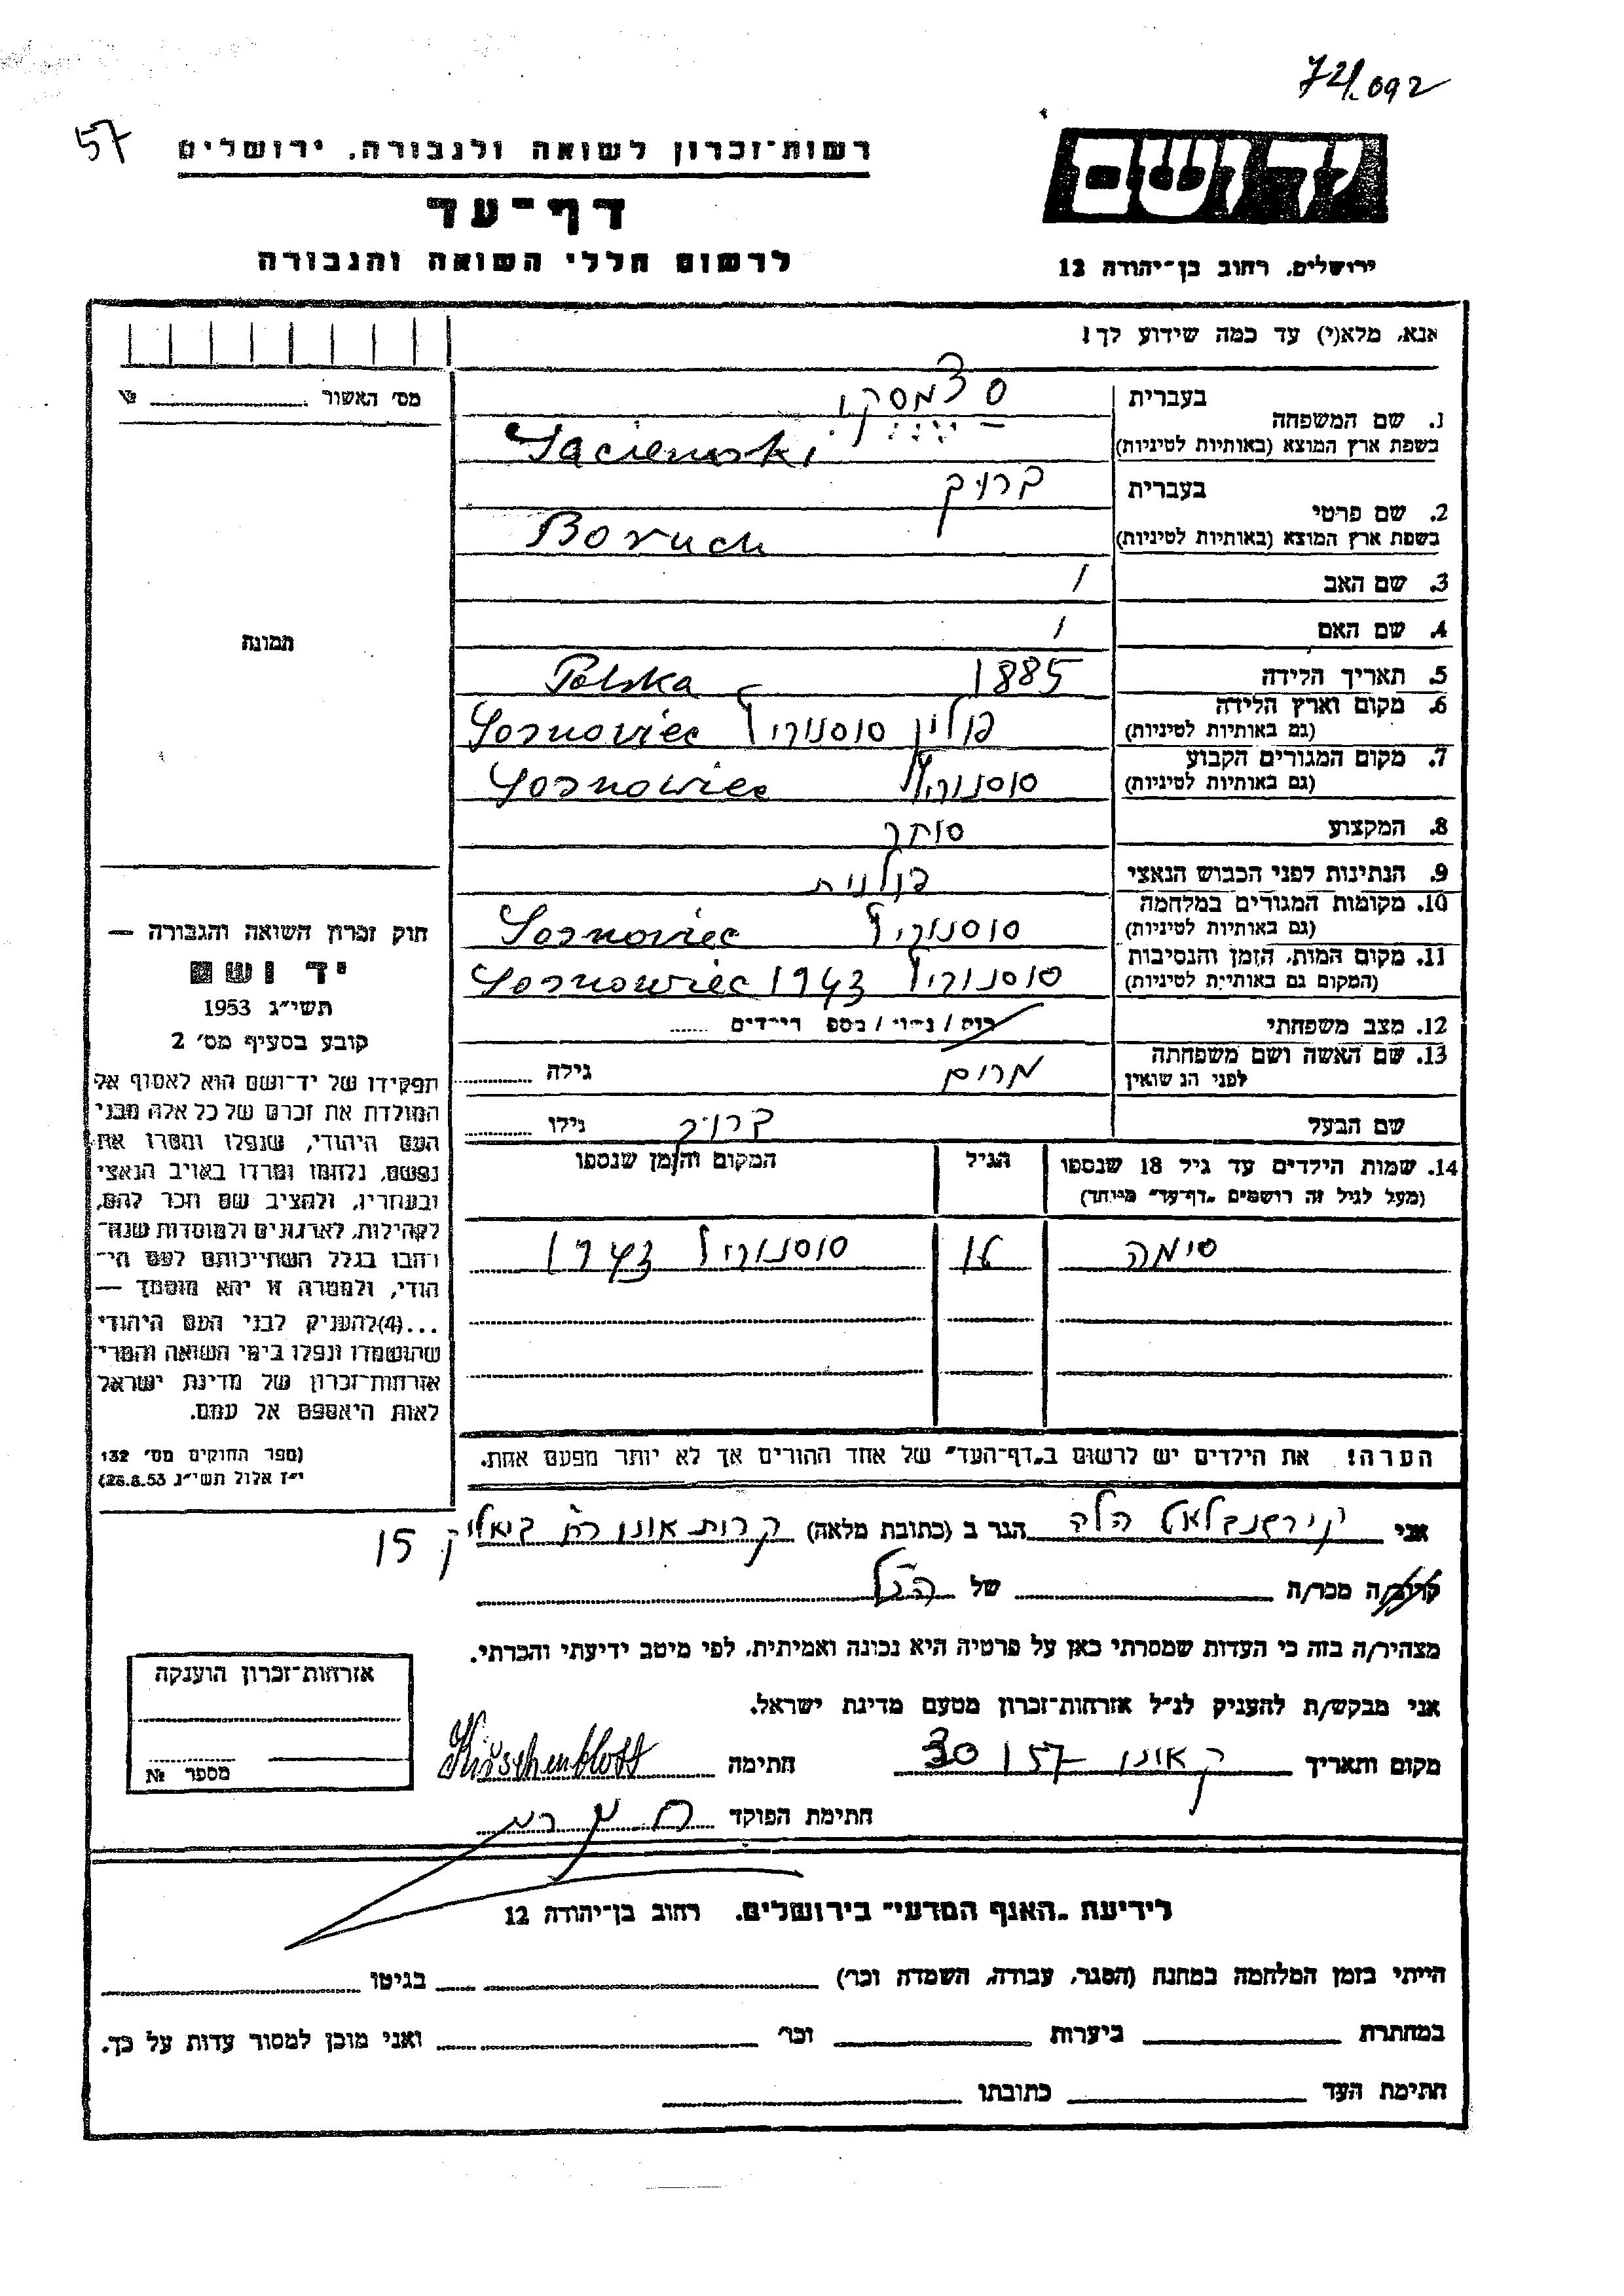 72/092
57
רשות־זכרון לשואה ולגבורה, ירושלים
דף־עד
לרשום חללי השואה והגבורה
ידושם
ירושלים, רחוב בן־יהודה 12
אנא, מלא(י) עד כמה שידוע לך!
מס׳ האשור
1. שם המשפחה
בעברית
בשפת ארץ המוצא (באותיות לטיניות)
2. שם פרטי
בעברית ברוך
בשפת ארץ המוצא (באותיות לטיניות) Boruch
3. שם האב /
4. שם האם /
5. תאריך הלידה 1885 Polska
6. מקום וארץ הלידה
(גם באותיות לטיניות) פולין סוסנוביץ Sosnoviec
7. מקום המגורים הקבוע
(גם באותיות לטיניות) סוסנוביץ Sosnowiec
8. המקצוע סוחר
9. הנתינות לפני הכבוש הנאצי פולנית
10. מקומות המגורים במלחמה
(גם באותיות לטיניות) סוסנוביץ Sosnoviec
11. מקום המות, הזמן והנסיבות
(המקום גם באותיות לטיניות) סוסנוביץ 1943 Sosnowiec
12. מצב משפחתי רוק / נשוי / מספר הילדים
13. שם האשה ושם משפחתה
לפני הנשואין מרים גילה
שם הבעל ברוך גילו
14. שמות הילדים עד גיל 18 שנספו הגיל המקום והזמן שנספו
(מעל לגיל זה רושמים „דף־עד״ מיוחד)
סימה 16 סוסנוביץ 1943
הערה! את הילדים יש לרשום ב„דף־העד״ של אחד ההורים אך לא יותר מפעם אחת.
תמונה
חוק זכרון השואה והגבורה —
יד ושם
תשי״ג 1953
קובע בסעיף מס׳ 2
תפקידו של יד־ושם הוא לאסוף אל
המולדת את זכרם של כל אלה מבני
העם היהודי, שנפלו ומסרו את
נפשם, נלחמו ומרדו באויב הנאצי
ובעוזריו, ולהציב שם וזכר להם,
לקהילות, לארגונים ולמוסדות שנח־
רבו בגלל השתייכותם לעם הי־
הודי, ולמטרה זו יהא מוסמך —
...(4)להעניק לבני העם היהודי
שהושמדו ונפלו בימי השואה והמרי־
אזרחות־זכרון של מדינת ישראל
לאות היאספם אל עמם.
(ספר החוקים מס׳ 132
י״ז אלול תשי״ג 28.8.53)
אני קירשנבלאט הלה הגר ב (כתובת מלאה) קרית אונו רח ביאליק 15
קרוב/ה מכר/ה של הנ״ל
מצהיר/ה בזה כי העדות שמסרתי כאן על פרטיה היא נכונה ואמיתית, לפי מיטב ידיעתי והכרתי.
אני מבקש/ת להעניק לנ״ל אזרחות־זכרון מטעם מדינת ישראל.
מקום ותאריך ק אונו חתימה Kirschenblatt
חתימת הפוקד
אזרחות־זכרון הוענקה
מספר №
לידיעת „האגף המדעי״ בירושלים, רחוב בן־יהודה 12
הייתי בזמן המלחמה במחנה (הסגר, עבודה, השמדה וכו׳) בגיטו
במחתרת ביערות וכו׳ ואני מוכן למסור עדות על כך.
חתימת העד כתובתו